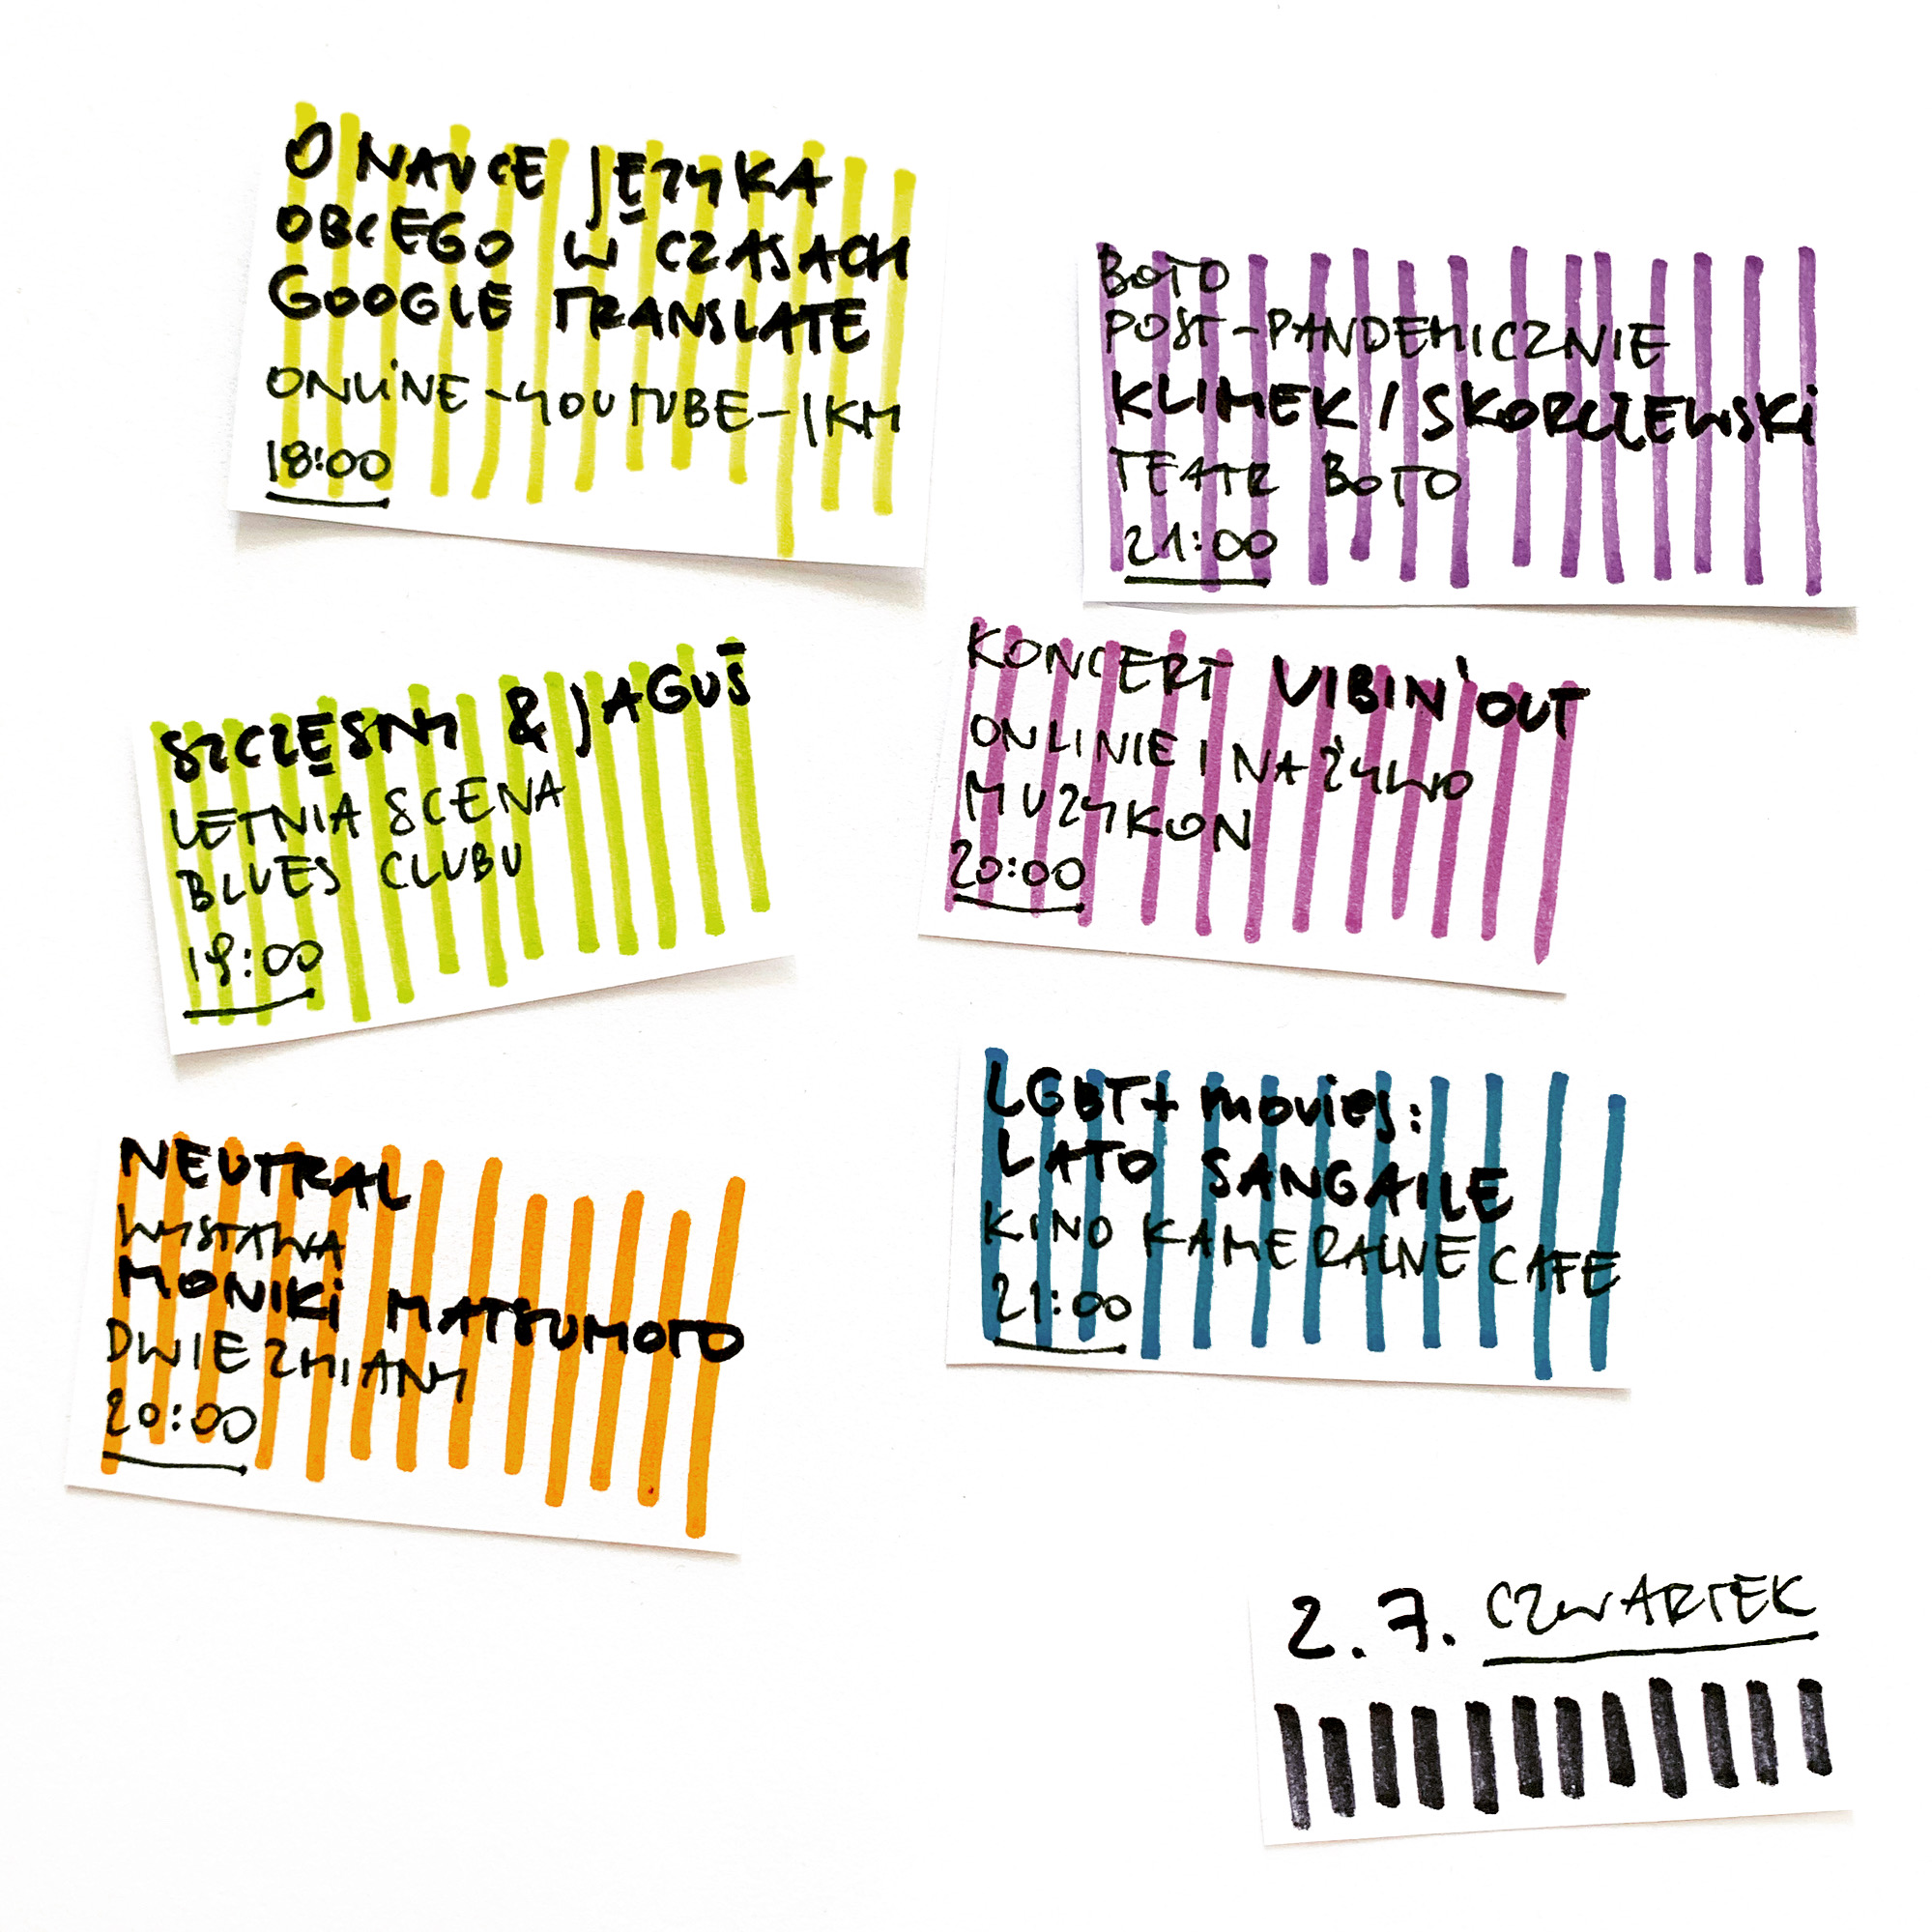 O NAUCE JĘZYKA
OBCEGO W CZASACH
GOOGLE TRANSLATE
ONLINE - YOUTUBE - IKM
18:00
SZCZĘSNY & JAGUŚ
LETNIA SCENA
BLUES CLUBU
19:00
NEUTRAL
WYSTAWA
MONIKI MATSUMOTO
DWIE ZMIANY
20:00
BOTO
POST-PANDEMICZNIE
KLIMEK / SKORCZEWSKI
TEATR BOTO
21:00
KONCERT VIBIN' OUT
ONLINIE I NA ŻYWO
MUZYKON
20:00
LGBT+ movies:
LATO SANGAILE
KINO KAMERALNE CAFE
21:00
2.7. CZWARTEK